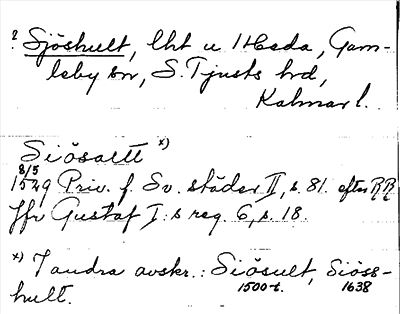 ? Sjöshult, lht u. Heda, Gam-
leby sn, S. Tjusts hd,
Kalmar l.
Siösaltt x)
8/5
1529 Priv. f. Sv. städer II, s. 81. efter RR
Jfr Gustaf I:s reg. 6, s. 18.
x) I andra avskr.: Siösult, Siöss-
1500-t. 1638
hult.